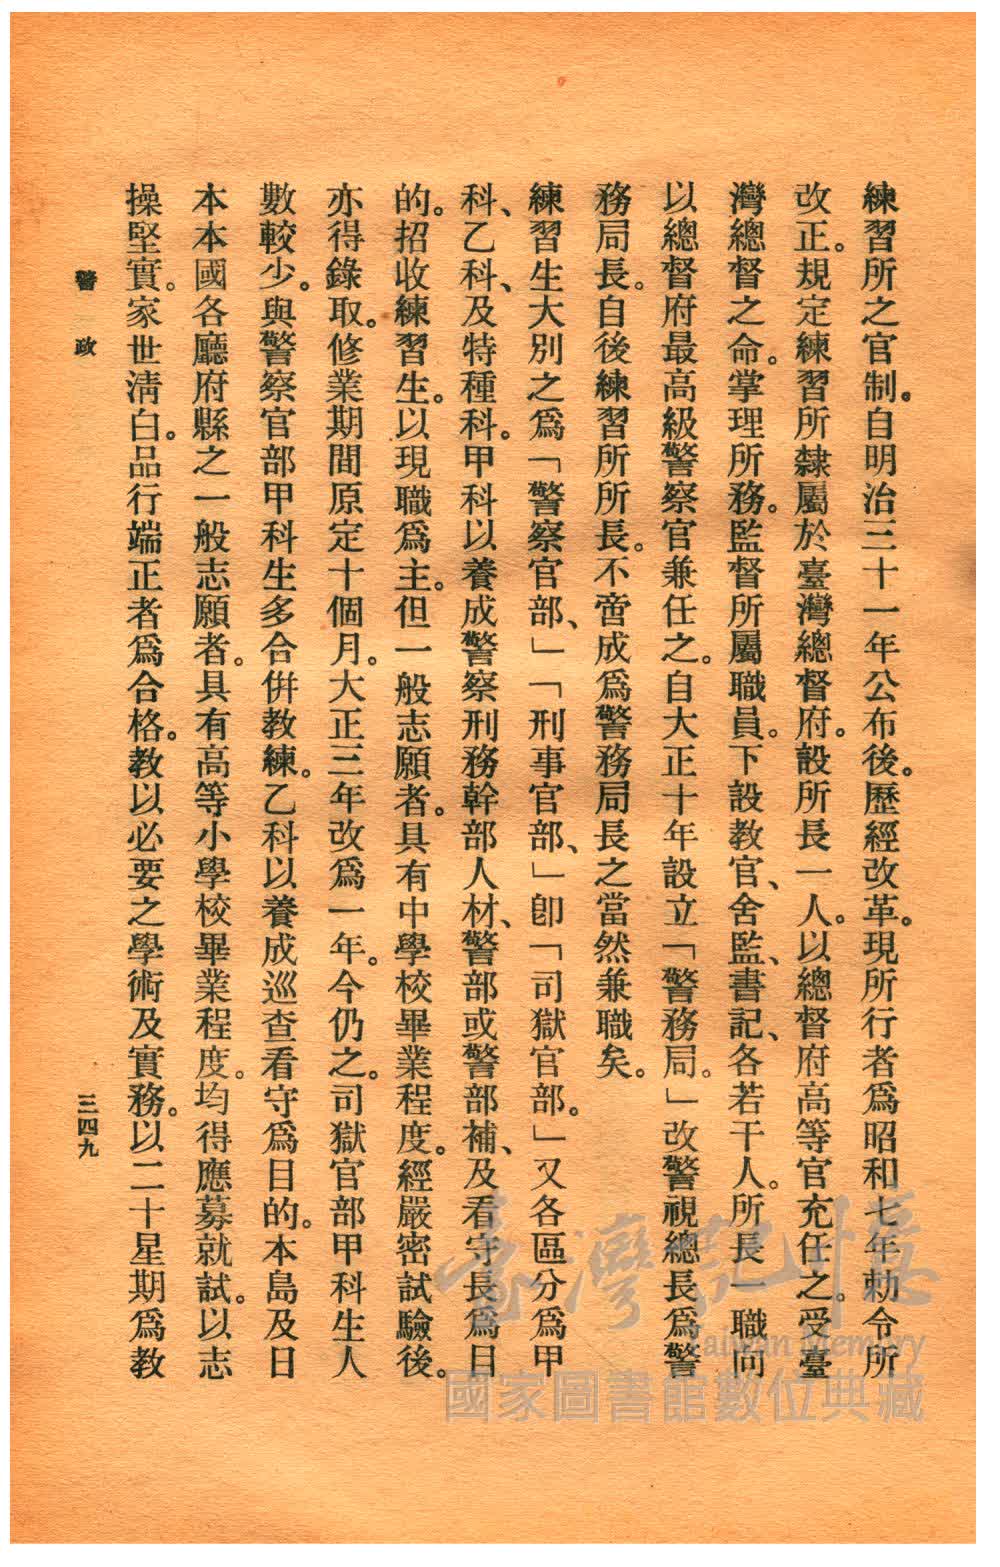 練習所之官制。自明治三十一年公布後。歷經改革。現所行者爲昭和七年勅令所
改正。規定練習所隸屬於臺灣總督府。設所長一人。以總督府高等官充任之。受臺
灣總督之命。掌理所務。監督所屬職員。下設教官、舍監、書記、各若干人。所長一職向
以總督府最高級警察官兼任之。自大正十年設立「警務局。」改警視總長爲警
務局長。自後練習所所長。不啻成爲警務局長之當然兼職矣。
練習生大別之爲「警察官部、」「刑事官部、」卽「司獄官部。」又各區分爲甲
科、乙科、及特種科。甲科以養成警察刑務幹部人材、警部或警部補、及看守長爲目
的。招收練習生。以現職爲主。但一般志願者。具有中學校畢業程度。經嚴密試驗後。
亦得錄取。修業期間原定十個月。大正三年改爲一年。今仍之。司獄官部甲科生人
數較少。與警察官部甲科生多合倂教練。乙科以養成巡查看守爲目的。本島及日
本本國各廳府縣之一般志願者。具有高等小學校畢業程度。均得應募就試。以志
操堅實。家世淸白。品行端正者爲合格。教以必要之學術及實務。以二十星期爲教
警政
三四九
臺灣記憶
Taiwan Memory
國家圖書館數位典藏